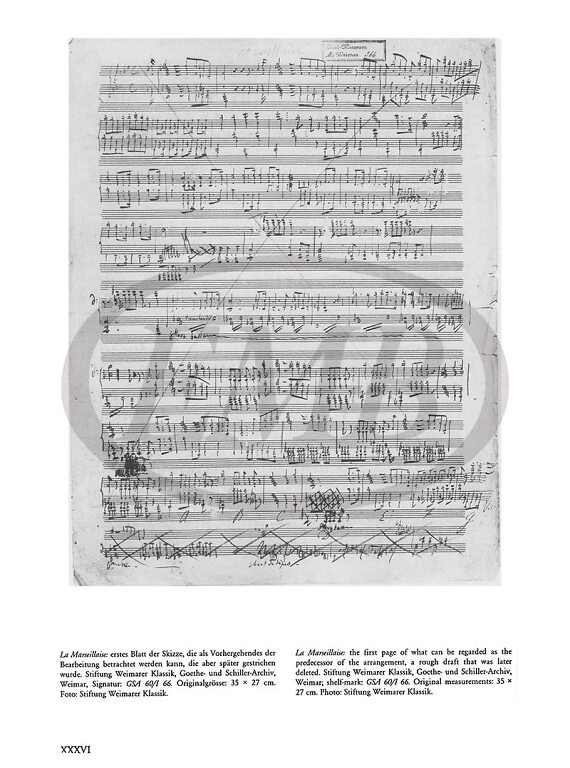 Marseillaise
Liszt-Museum
zu Weimar
La Marseillaise: erstes Blatt der Skizze, die als Vorhergehendes der
Bearbeitung betrachtet werden kann, die aber später gestrichen
wurde. Stiftung Weimarer Klassik, Goethe- und Schiller-Archiv,
Weimar, Signatur: GSA 60/I 66. Originalgrösse: 35 × 27 cm.
Foto: Stiftung Weimarer Klassik.
La Marseillaise: the first page of what can be regarded as the
predecessor of the arrangement, a rough draft that was later
deleted. Stiftung Weimarer Klassik, Goethe- und Schiller-Archiv,
Weimar; shelf-mark: GSA 60/I 66. Original measurements: 35 ×
27 cm. Photo: Stiftung Weimarer Klassik.
EMB
XXXVI